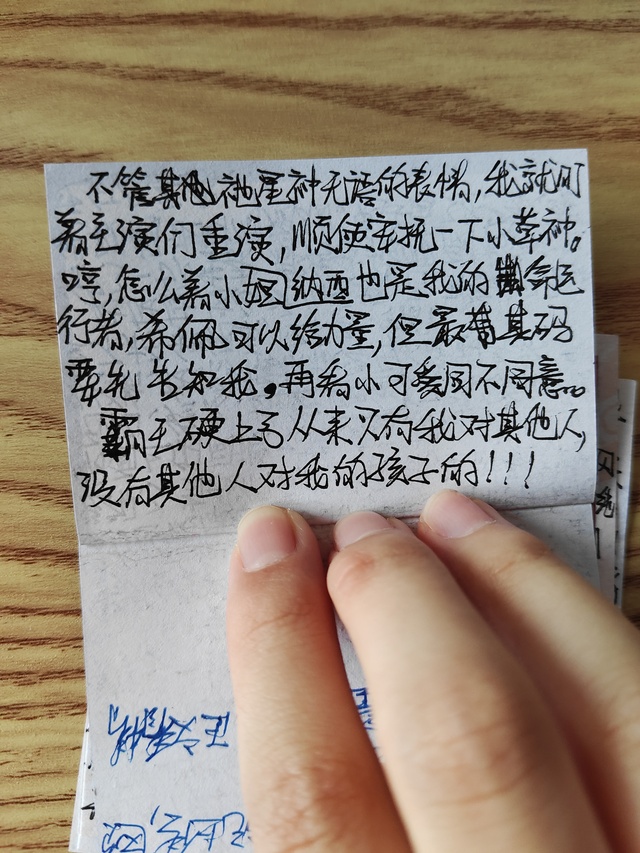 不管其他祂星神无语的表情，我就盯
着主演们重演，顺便安抚一下小草神。
哼，怎么着小姐纳西也是我的命运
行者，希佩可以给力量，但最其码
要先告知我，再看小可爱同不同意。
霸王硬上弓从来只有我对其他人，
没有其他人对我的孩子的！！！